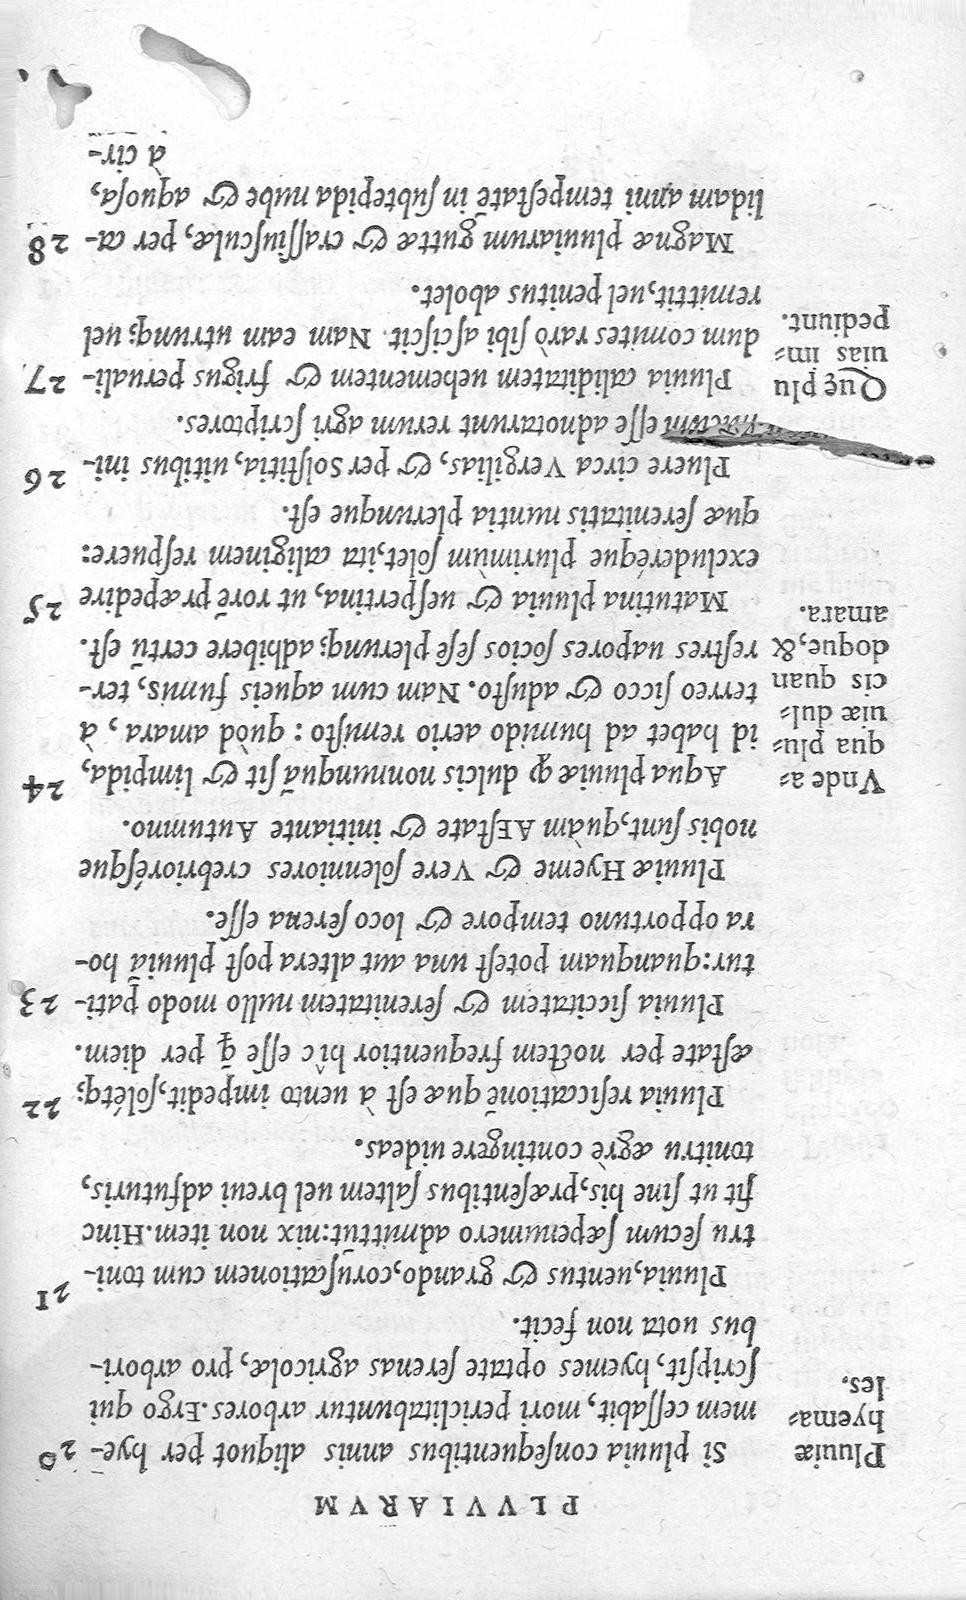 PLVVIARVM
Pluuiæ
hyema=
les.
Si pluuia consequentibus annis aliquot per hye- 20
mem cessabit, mori periclitabuntur arbores. Ergo qui
scripsit, hyemes optate serenas agricolæ, pro arbori-
bus uota non fecit.
Pluuia, uentus & grando, coruscationem cum toni- 21
tru secum sæpenumero admittūt: nix non item. Hinc
fit ut sine his, præsentibus saltem uel breui adfuturis,
tonitru ægrè contingere uideas.
Pluuia resiccationē quæ est à uento impedit, solétq; 22
æstate per noctem frequentior hîc esse q̄ per diem.
Pluuia siccitatem & serenitatem nullo modo pati- 23
tur: quanquam potest una aut altera post pluuiā ho-
ra opportuno tempore & loco serena esse.
Pluuiæ Hyeme & Vere solenniores crebriorésque
nobis sunt, quàm AEstate & initiante Autumno.
Vnde a=
qua plu=
uiæ dul=
cis quan
doque, &
amara.
Aqua pluuiæ q dulcis nonnunquā sit & limpida, 24
id habet ad humido aerio remisto: quòd amara, à
terreo sicco & adusto. Nam cum aqueis fumus, ter-
restres uapores socios sese plerunq; adhibere certū est.
Matutina pluuia & uespertina, ut rorē præpedire 25
excluderéque plurimùm solet, ita caliginem respuere:
quæ serenitatis nuntia plerunque est.
Pluere circa Vergilias, & per Solstitia, uitibus ini- 26
esse adnotarunt rerum agri scriptores.
Quę plu
uias im=
pediunt.
Pluuia caliditatem uehementem & frigus peruali- 27
dum comites rarò sibi asciscit. Nam eam utrunq; uel
remittit, uel penitus abolet.
Magnæ pluuiarum guttæ & crassiusculæ, per ca- 28
lidam anni tempestatē in subtepida nube & aquosa,
à cir-